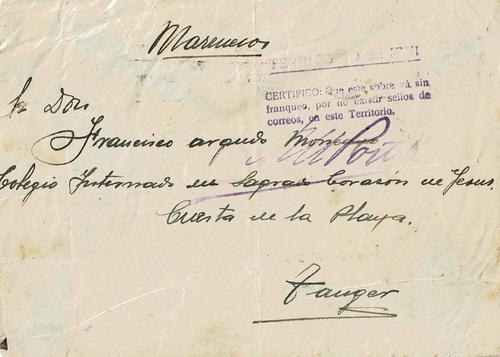 Marruecos
CERTIFICO: Que este sobre vá sin
franqueo, por no existir sellos de
correos, en este Territorio.
Sr Don
Francisco
Colegio Internado del Sagrado Corazón de Jesus.
Cuesta de la Playa.
Tanger